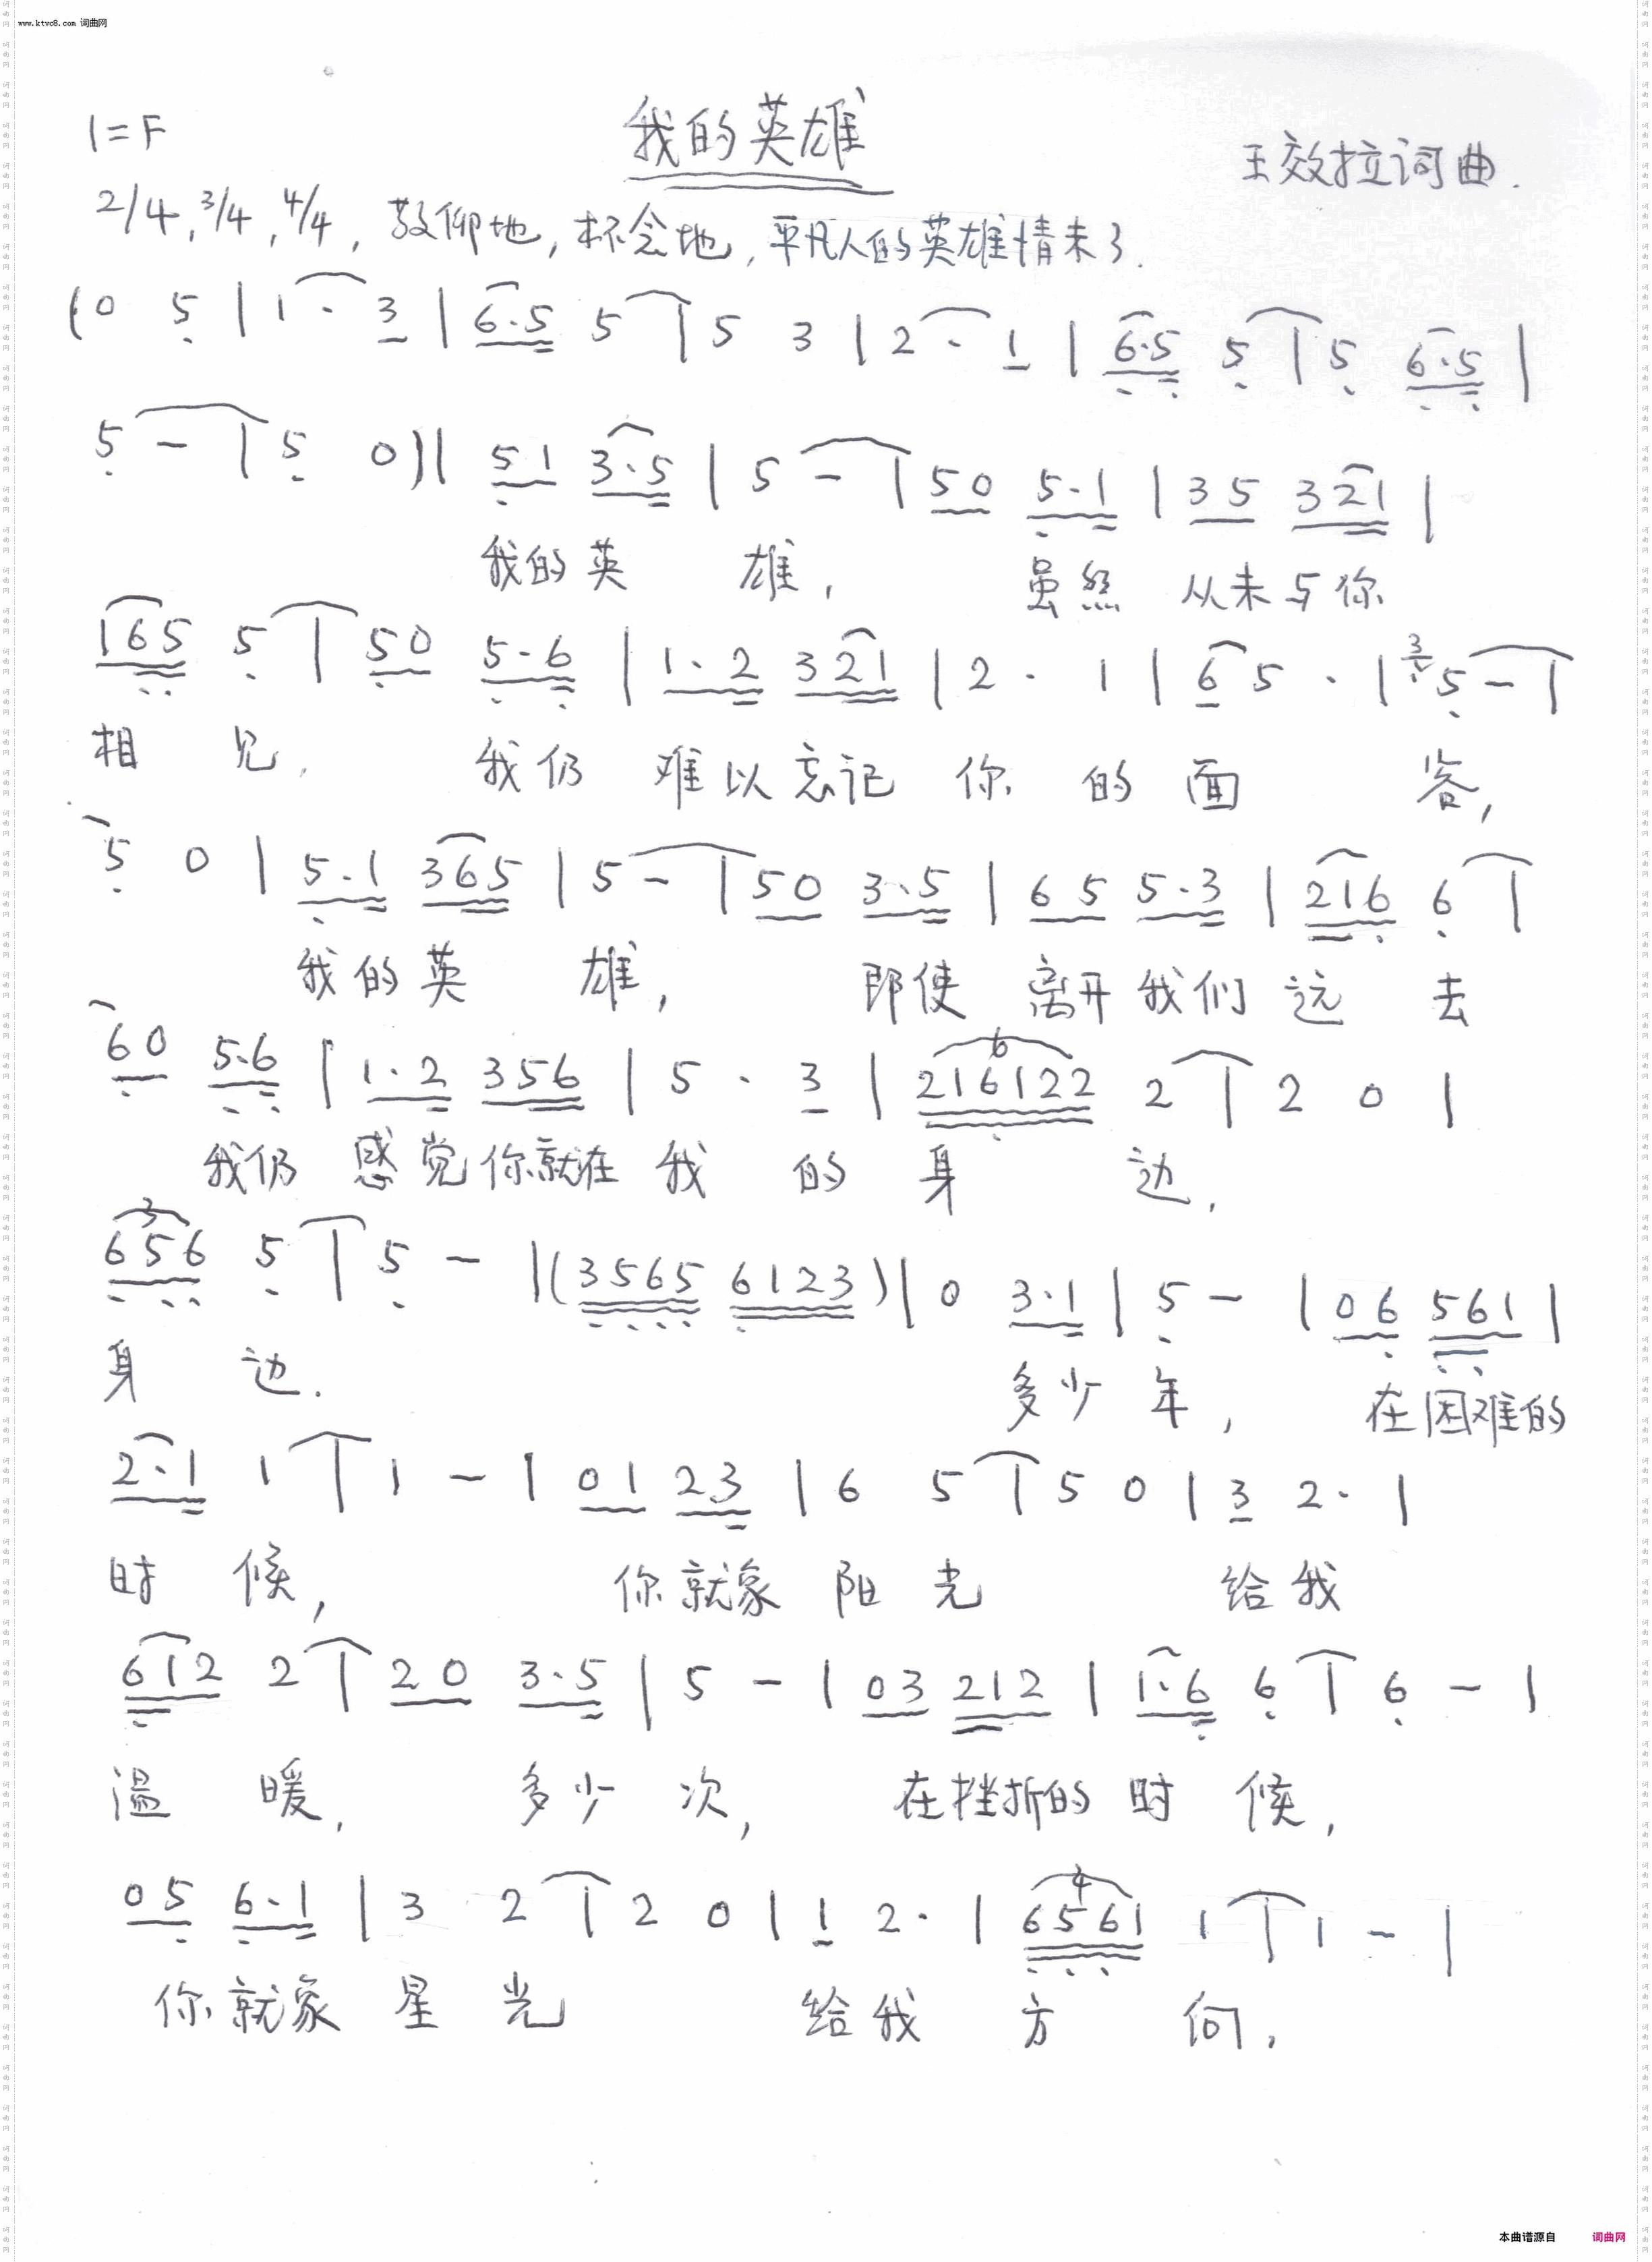 www.ktvc8.com 词曲网
1=F 我的英雄 王效拉词曲.
2/4, 3/4, 4/4, 敬仰地, 怀念地, 平凡人的英雄情未了.
(0 5 | 1 · 3 | 6·5 5 | 5 3 | 2 · 1 | 6·5 5 | 5 6·5 |
5 - | 5 0)| 5 1 3·5 | 5 - | 5 0 5·1 | 3 5 3 2 1 |
我的英 雄, 虽然 从未与你
1 6 5 5 | 5 0 5·6 | 1·2 3 2 1 | 2 · 1 | 6 5 · | 5 - |
相 见, 我仍 难以忘记 你 的 面 容,
5 0 | 5·1 3 6 5 | 5 - | 5 0 3·5 | 6 5 5·3 | 2 1 6 6 |
我的英 雄, 即使 离开我们 远 去
6 0 5·6 | 1·2 3 5 6 | 5 · 3 | 2 1 6 1 2 2 2 | 2 0 |
我仍 感觉你就在 我 的 身 边,
6 5 6 5 | 5 - |(3 5 6 5 6 1 2 3)| 0 3·1 | 5 - | 0 6 5 6 1 |
身 边. 多少 年, 在困难的
2·1 1 | 1 - | 0 1 2 3 | 6 5 | 5 0 | 3 2 · |
时 候, 你就象 阳 光 给我
6 1 2 2 | 2 0 3·5 | 5 - | 0 3 2 1 2 | 1·6 6 | 6 - |
温 暖, 多少 次, 在挫折的 时 候,
0 5 6·1 | 3 2 | 2 0 | 1 2 · | 6 5 6 1 1 | 1 - |
你就象 星 光 给我 方 向,
本曲谱源自 词曲网